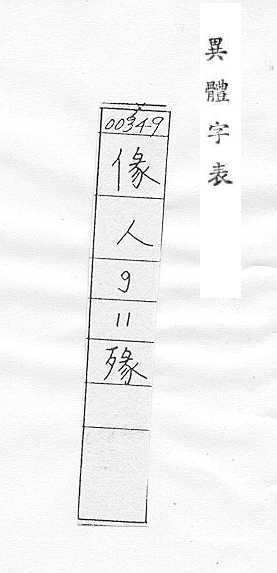 異體字表
00349
人
9
11